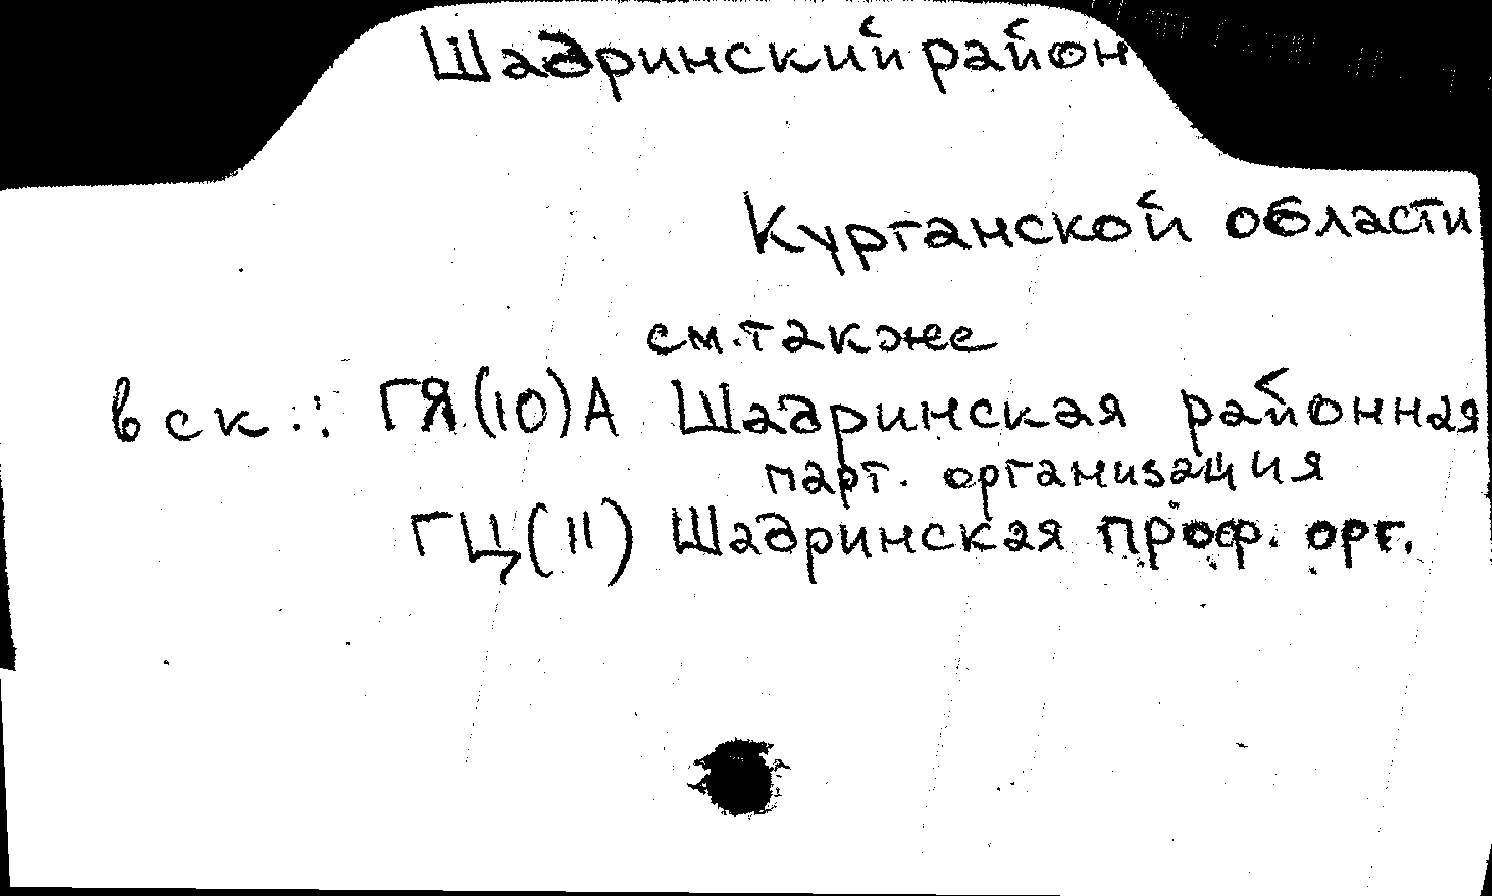 Шадринский район
Курганской области
см. также
в ск.: ГЯ(10)А Шадринская районная
парт. организация
ГЦ(11) Шадринская проф. орг.